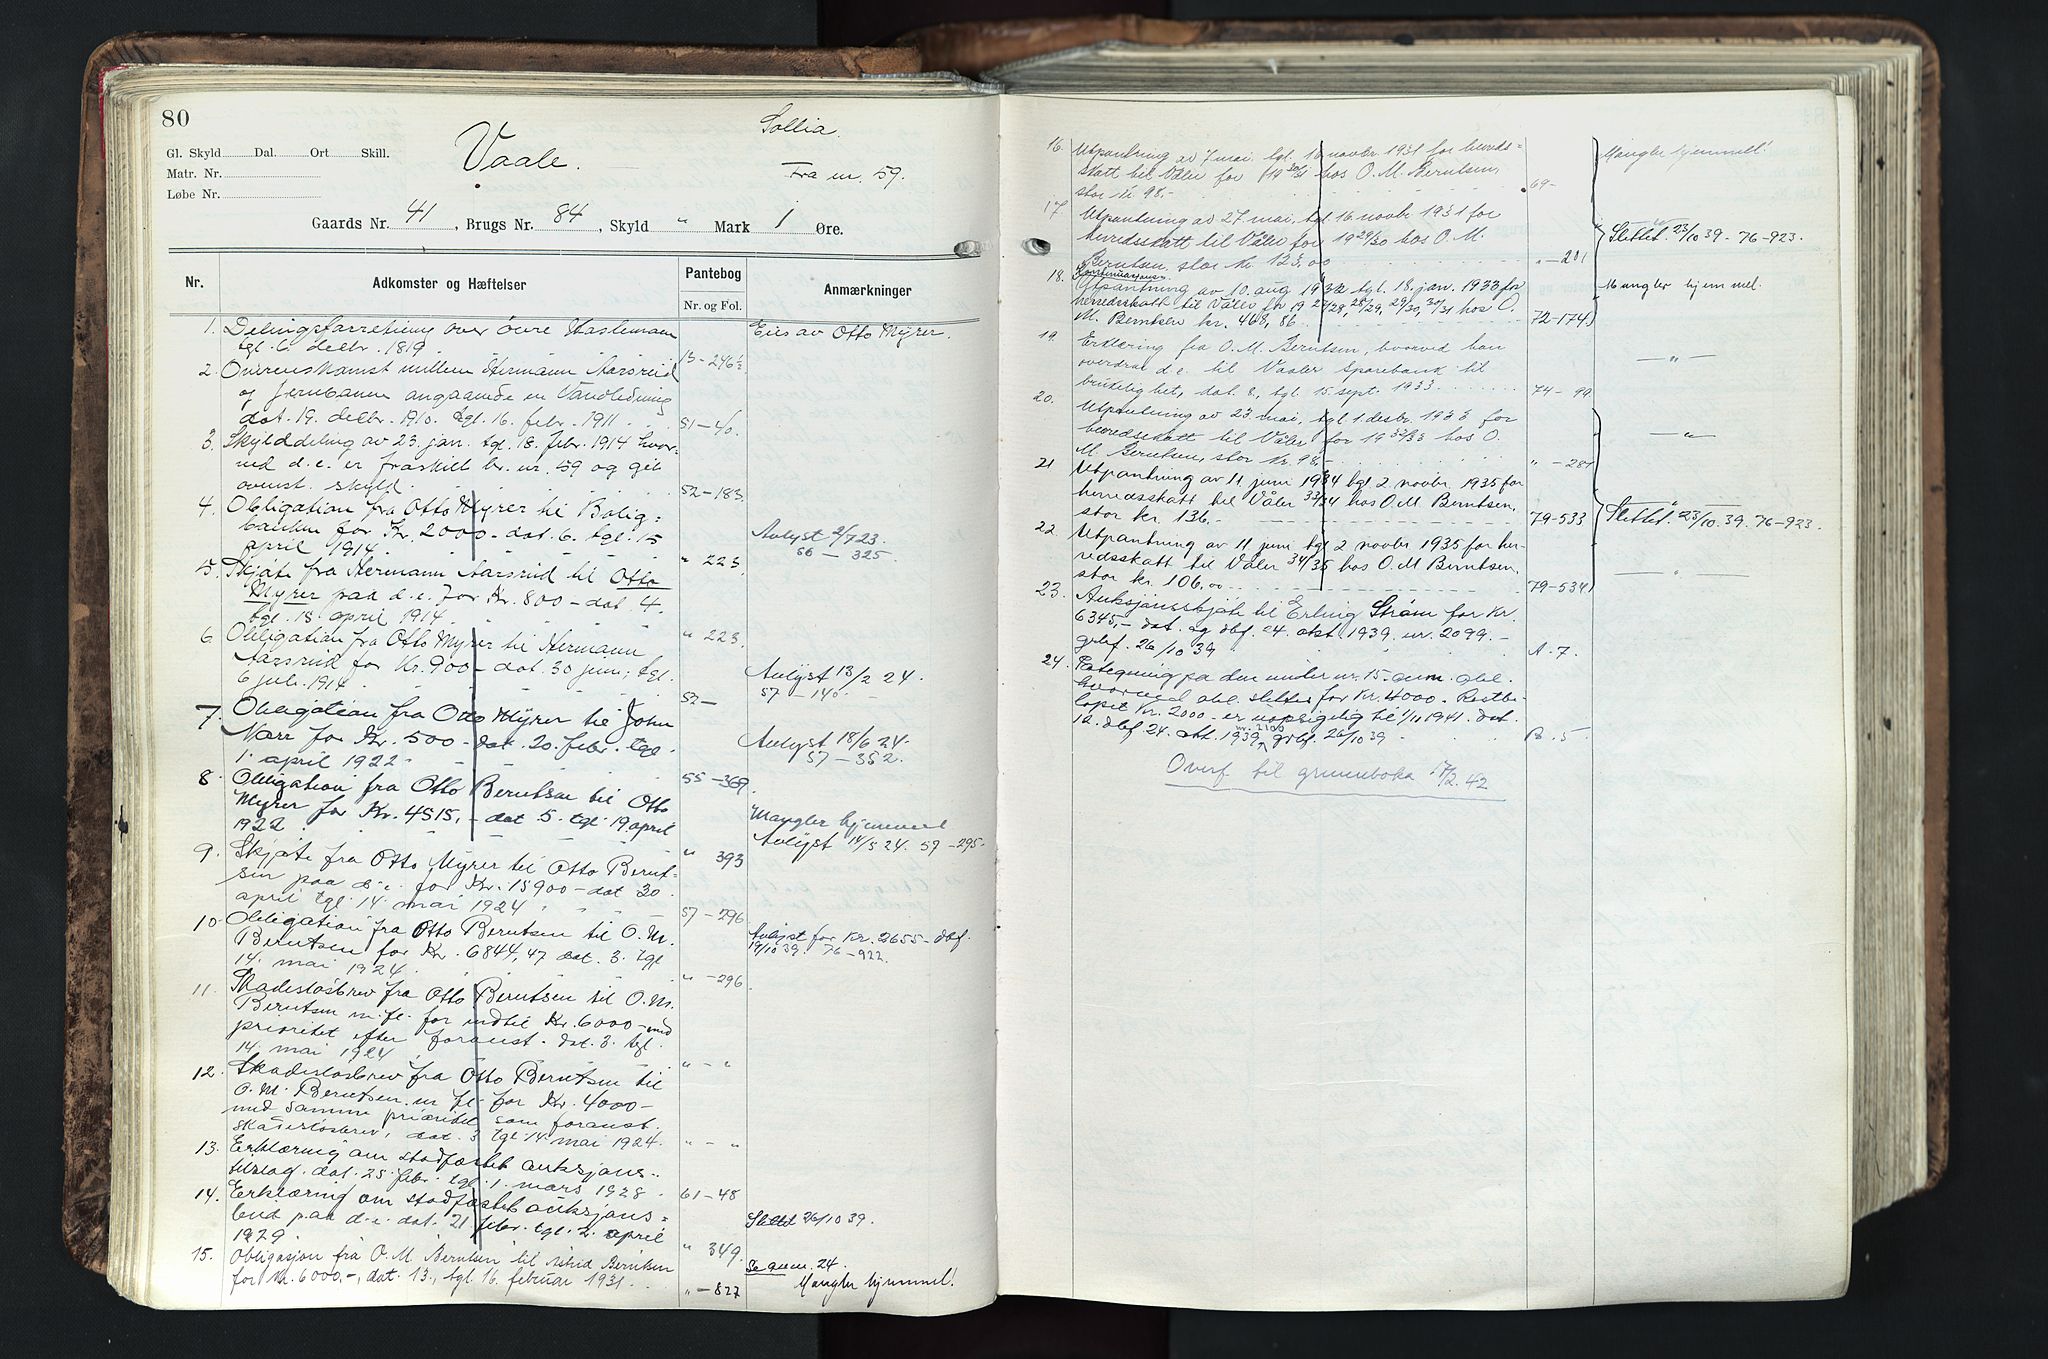 80
Sollia.
Gl. Skyld Dal. Ort Skill.
Vaale.
Matr. Nr.
Fra nr. 59.
Løbe Nr.
Gaards Nr. 41, Brugs Nr. 84, Skyld " Mark 1 Øre.
Nr. Adkomster og Hæftelser Pantebog Nr. og Fol. Anmærkninger
1. Delingsforretning over övre Haslemoen Eies av Otto Myrer.
tgl. 6. decbr. 1819. 13-246½
2. Overenskomst mellem Hermann Aarsrud
og Jernbanen angaaende en Vandledning
dat. 19. decbr. 1910. tgl. 16. febr. 1911. 51-40.
3. Skylddeling av 23. jan. tgl. 18. febr. 1914 hvor-
ved d.e. er fraskilt br. nr. 59 og git
ovenst. skyld. 52-183.
4. Obligation fra Otto Myrer til Bolig=
banken for Kr. 2000- dat. 6. tgl. 15 Avlyst 2/7 23.
april 1914. " 223. 56-325
5. Skjøte fra Hermann Aarsrud til Otto
Myrer paa d.e. for Kr. 800- dat. 4.
tgl. 15. april 1914. " 223.
6. Obligation fra Otto Myrer til Hermann
Aarsrud for Kr. 900- dat. 30 juni, tgl. Avlyst 13/2 24.
6 juli 1914. 52- 57-140.
7. Obligation fra Otto Myrer til John
Narr for Kr. 500- dat. 20. febr. tgl. Avlyst 18/6 24.
1. april 1922 55-369. 57-352.
8. Obligation fra Otto Berntsen til Otto
Myrer for Kr. 4515,- dat. 5. tgl. 19 april Mangler hjemmel
1922. " 393 Avlyst 14/5 24. 57-295.
9. Skjøte fra Otto Myrer til Otto Bernt-
sen paa d.e. for Kr. 15900- dat. 30
april tgl. 14. mai 1924 57-296
10. Obligation fra Otto Berntsen til O.M. Avlyst for Kr. 2655- dbf.
Berntsen for Kr. 6844,47 dat. 3. tgl. 19/10 39. 76-922.
14. mai 1924. " -296
11. Skadesløsbrev fra Otto Berntsen til O.M.
Berntsen m. fl. for indtil Kr. 6000- med
prioritet efter foranst. dat. 3. tgl.
14. mai 1924 " - "
12. Skadesløsbrev fra Otto Berntsen til
O.M. Berntsen m. fl. for Kr. 4000-
med samme prioritet som foranst.
skadesløsbrev, dat. 3 tgl. 14. mai 1924. " - "
13. Erklæring om stadfæstet auksjons-
tilslag. dat. 25. febr. tgl. 1. mars 1928. 61-48
14. Erklæring om stadfæstet auksjons=
bud paa d.e. dat. 21 febr. tgl. 2. april Slettet 26/10 39.
1929. " 349.
15. Obligasjon frå O. M. Berntsen til Astrid Berntsen Se anm. 24.
for Kr. 6000,-, dat. 13., tgl. 16. februar 1931. "-827 Mangler hjemmel!
16. Utpantning av 7 mai, tgl. 16 novbr. 1931 for herreds= Mangler hjemmel!
skatt til Våler for 19 30/31 hos O. M. Berntsen,
stor kr. 98.- 69-
17. Utpantning av 27 mai, tgl. 16 novbr. 1931 for
herredsskatt til Våler for 1929/30 hos O. M. Slettet 23/10 39 - 76-923.
Berntsen, stor kr. 123,00 "-201
18. Kontinuasjons-
Utpantning av 10. aug. 1932 tgl. 18. jan. 1933 for Mangler hjemmel.
herredsskatt til Våler for 19 27/28, 28/29, 29/30, 30/31 hos O.
M. Berntsen kr. 468,86. 72-174.
19. Erklæring fra O. M. Berntsen, hvorved han
overdrar d.e. til Vaaler Sparebank til - " -
brukelighet, dat. 8., tgl. 15. sept. 1933. 74-99
20. Utpantning av 23. mai, tgl. 1. desbr. 1933 for
herredsskatt til Våler for 1932/33 hos O. - " -
M. Berntsen, stor kr. 98,- "-281
21 Utpantning av 11 juni 1934 tgl 2 novbr. 1935 for
herredsskatt til Våler 33/34 hos O. M. Berntsen,
stor kr. 136.- 79-533 Slettet 23/10 39. 76-923.
22. Utpantning av 11 juni tgl 2 novbr. 1935 for her-
redsskatt til Våler 34/35 hos O. M Berntsen, - " -
stor kr. 106.00 79-534
23. Auksjonsskjøte til Erling Strøm for kr.
6345,- dat. og dbf. 24. okt. 1939. nr. 2099.-
grbf. 26/10 39 A. 7.
24. Påtegning på den under nr. 15. anm. obl.
hvorved obl. slettes for Kr. 4000.- Restbe-
løpet Kr. 2000- er uopsigelig til 1/11 1941. dat.
12. dbf 24. okt. 1939, nr. 2100 grbf. 26/10 39 B. 5.
Overf. til grunnboka 17/2. 42